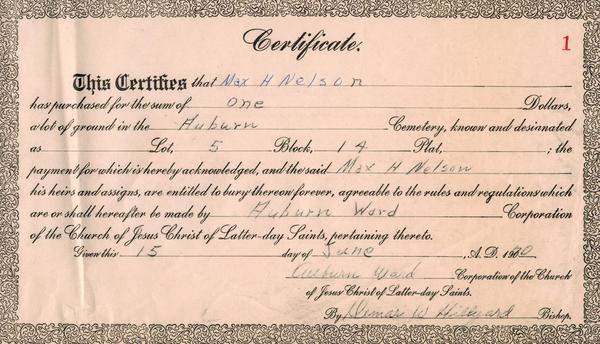 Certificate.
1
This Certifies that Max H Nelson
has purchased for the sum of one Dollars,
a lot of ground in the Auburn Cemetery, known and desianated
as Lot, 5 Block, 14 Plat, ; the
payment for which is hereby acknowledged, and the said Max H Nelson
his heirs and assigns, are entitled to bury thereon forever, agreeable to the rules and regulations which
are or shall hereafter be made by Auburn Ward Corporation
of the Church of Jesus Christ of Latter-day Saints, pertaining thereto.
Given this 15 day of June , A. D. 19
Auburn Ward Corporation of the Church
of Jesus Christ of Latter-day Saints.
By W Bishop.